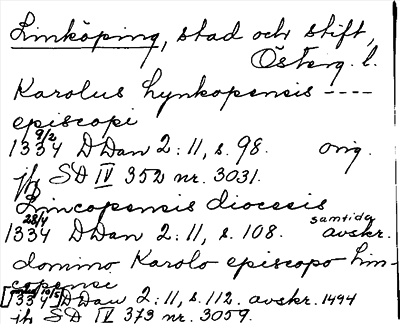 Linköping, stad och stift,
Österg. l.
Karolus Lynkopensis ----
episcopi
1334 9/2 DDan 2:11, s. 98. orig.
jfr SD IV 352 nr. 3031.
Lincopensis diocesis
1334 28/4 DDan 2:11, s. 108. samtida avskr.
domino Karolo episcopo Lin-
copensi
[1334 10/5] DDan 2:11, s. 112. avskr. 1494
jfr SD IV 373 nr. 3059.